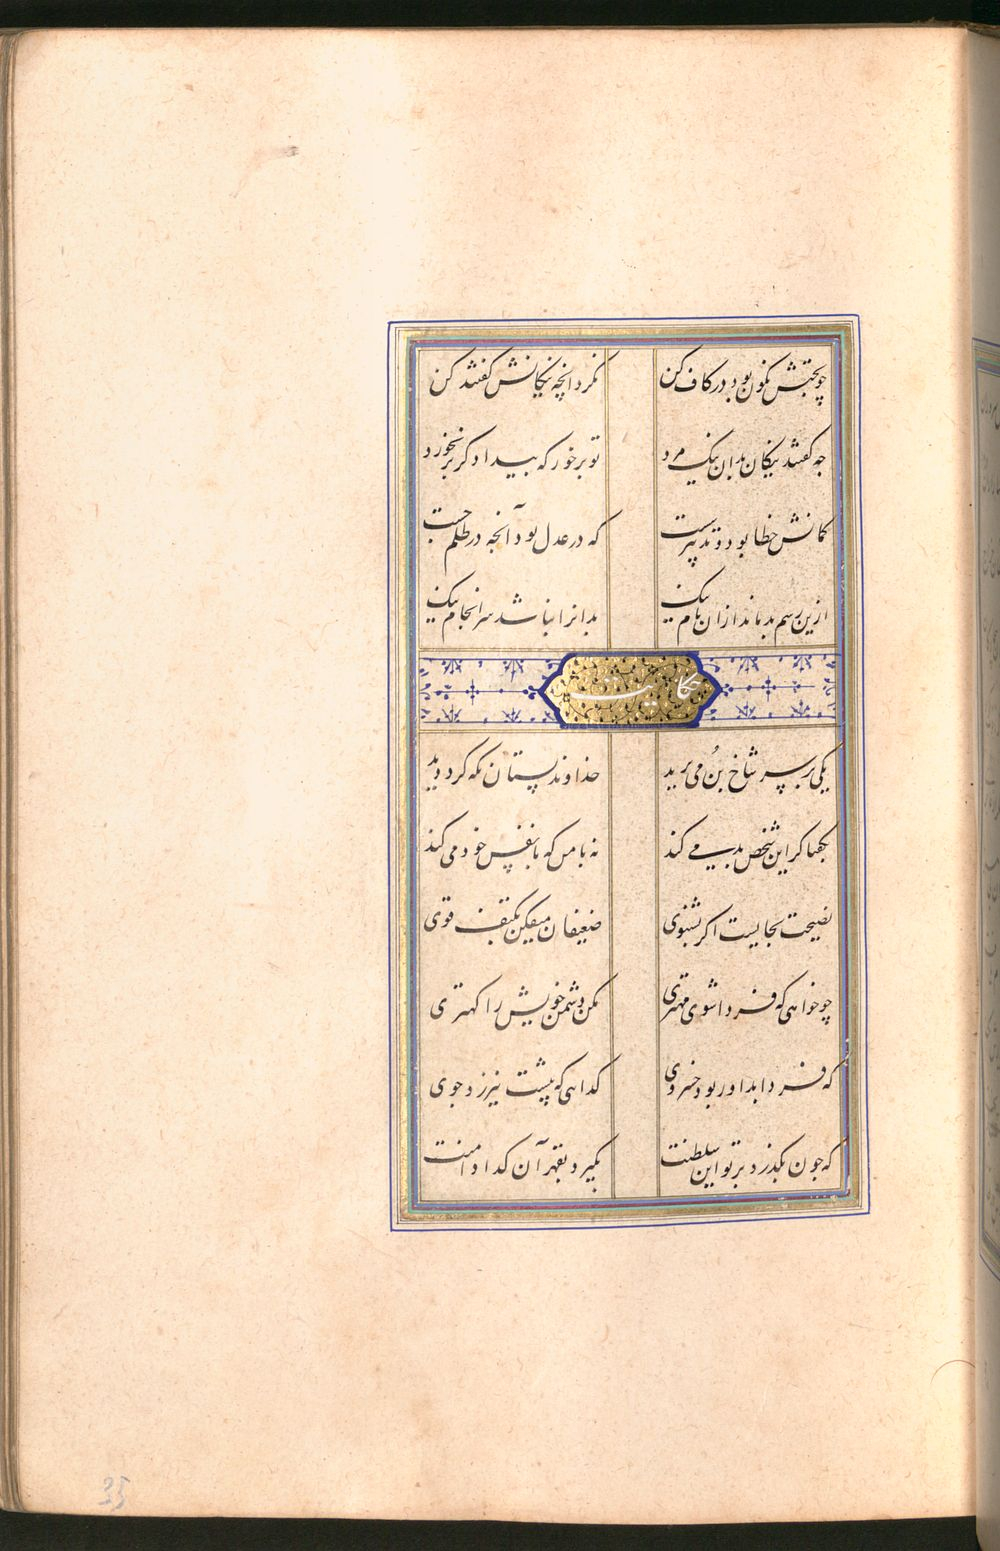 چو بختش نکون بود در کاف کن نکرد آنچه نیکانش گفتند کن
چه گفتند نیکان بدان نیک مرد تو برخور که بیداد گر برنخورد
کمانش خطا بود و تدبیر سست که در عدل بود آنچه در ظلم جست
ازین رسم بد ماند ازان نام نیک بدانرا نباشد سرانجام نیک
حکایت
یکی بر سر شاخ بُن می برید خداوند بستان نکه کرد و دید
بگفتا گر این شخص بد می کند نه با من که با نفس خود می کند
نصیحت بجایست اگر بشنوی ضعیفان میفکن بکتف قوی
چو خواهی که فردا شوی مهتری مکن دشمن خویش را کهتری
که فردا بداور بود خسروی گدایی که پیشت نیرزد جوی
که چون بگذرد بر تو این سلطنت بگیرد بقهر آن گدا دامنت
35